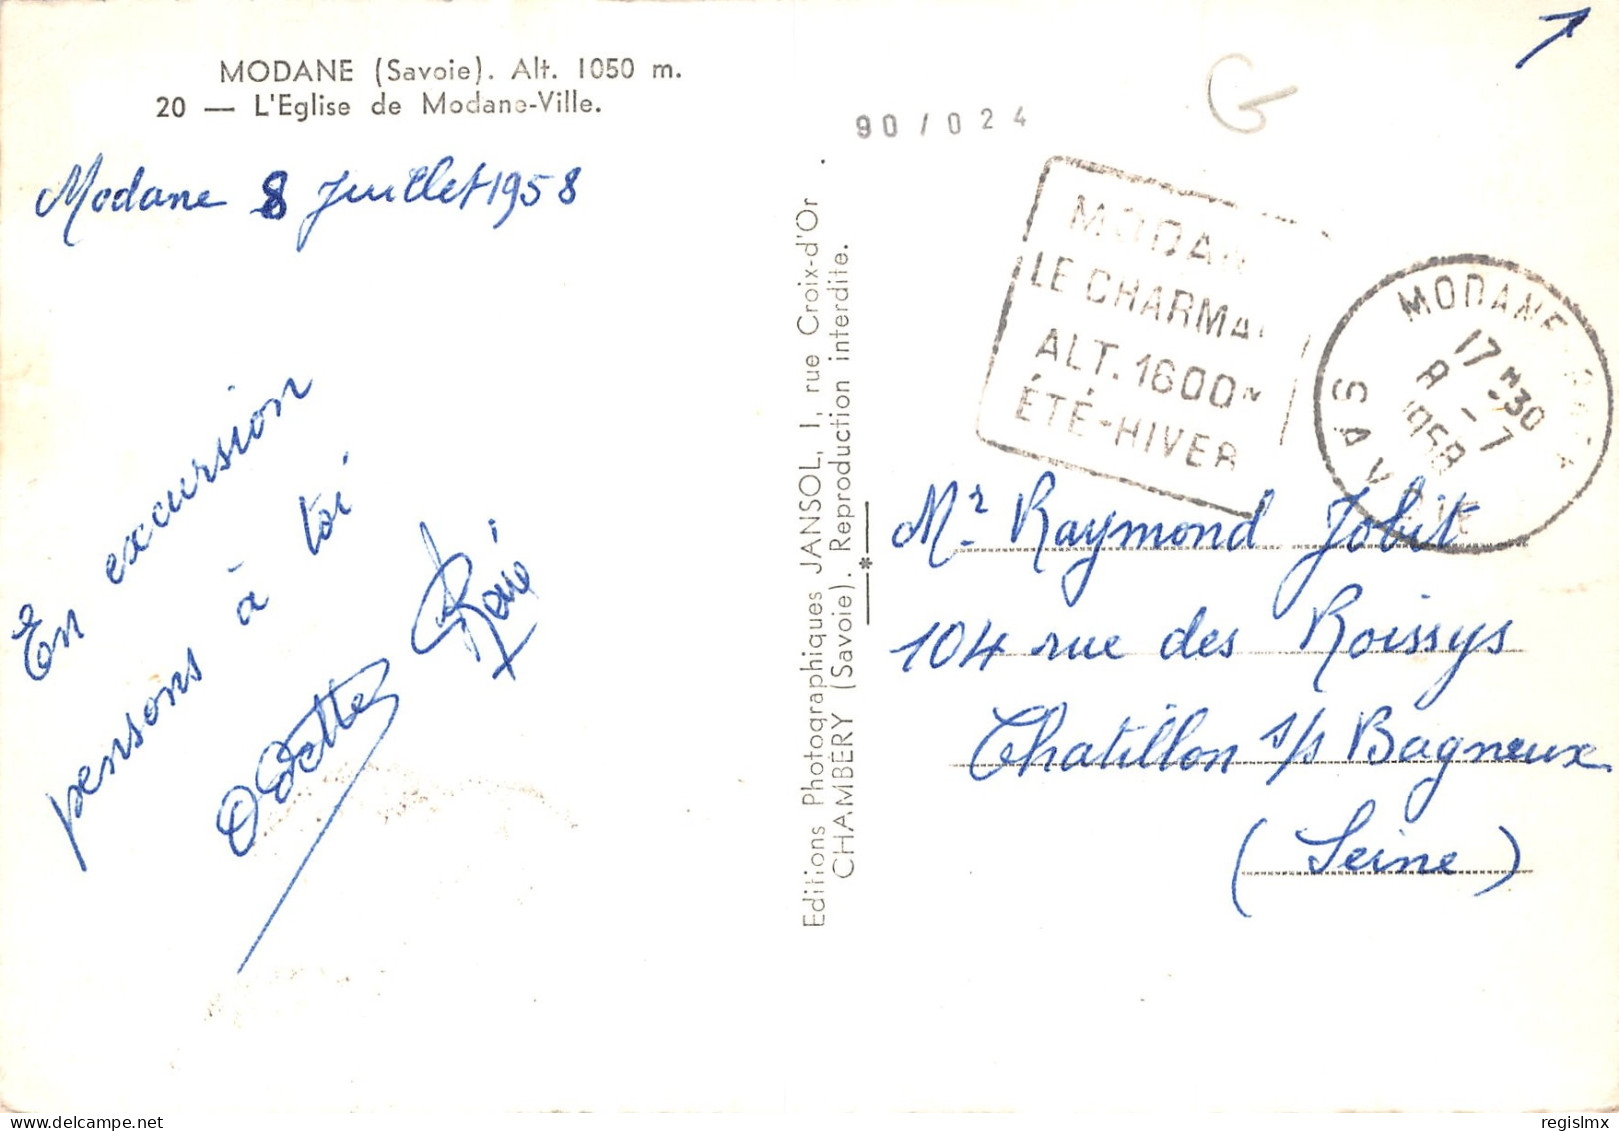 MODANE (Savoie). Alt. 1050 m.
20 — L'Eglise de Modane-Ville.
Modane 8 Juillet 1958
En excursion
pensons à toi
Odette
90/024
Editions Photographiques JANSOL, 1, rue Croix-d'Or
CHAMBÉRY (Savoie). Reproduction interdite.
MODAN
LE CHARMA
ALT. 1600 m
ÉTÉ-HIVER
MODANE GARE
17 H 30
8 - 7
1958
SAVOIE
Mr. Raymond Jobit
104 rue des Roissys
Chatillon s/s Bagneux
(Seine)
delcampe.net
regislmx